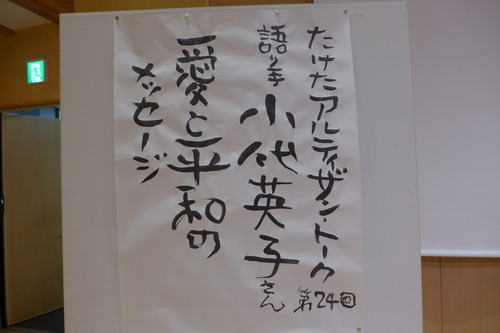 たけたアルティザン・トーク
第24回
語り手 小代英子さん
愛と平和の
メッセージ